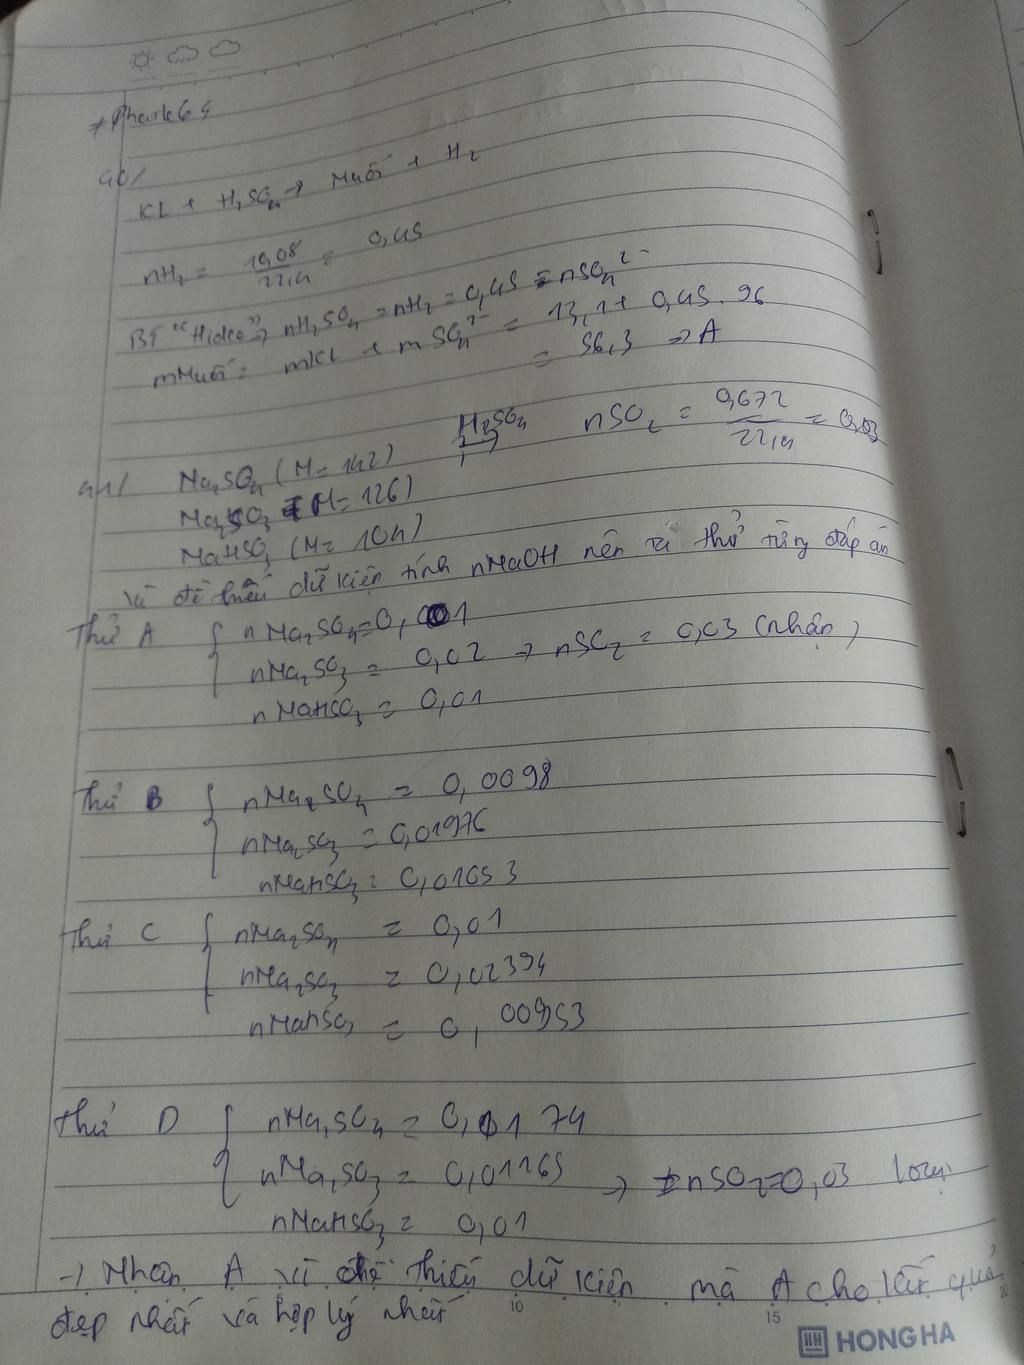 40/
KL + H₂SO₄ → Muối + H₂
nH₂ = 10,08/22,4 = 0,45
BT "Hidro" → nH₂SO₄ = nH₂ = 0,45 = nSO₄²⁻
mMuối = mKL + mSO₄²⁻ = 13,1 + 0,45.96
= 56,3 → A
41/ Na₂SO₄ (M = 142) H₂SO₄ → nSO₂ = 0,672/22,4 = 0,03
Na₂SO₃ (M = 126)
NaHSO₃ (M = 104)
Vì đề thiếu dữ kiện tính nNaOH nên ta thử từng đáp án
Thử A { nNa₂SO₄ = 0,01
nNa₂SO₃ = 0,02 → nSO₂ = 0,03 (nhận)
nNaHSO₃ = 0,01
Thử B { nNa₂SO₄ = 0,0098
nNa₂SO₃ = 0,01976
nNaHSO₃ = 0,01653
Thử C { nNa₂SO₄ = 0,01
nNa₂SO₃ = 0,02394
nNaHSO₃ = 0,00953
Thử D { nNa₂SO₄ = 0,0174
nNa₂SO₃ = 0,01265 → nSO₂ = 0,03 loại
nNaHSO₃ = 0,01
→ Nhận A vì đề thiếu dữ kiện mà A cho kết quả
đẹp nhất và hợp lý nhất
10 15 20
HH HONG HA